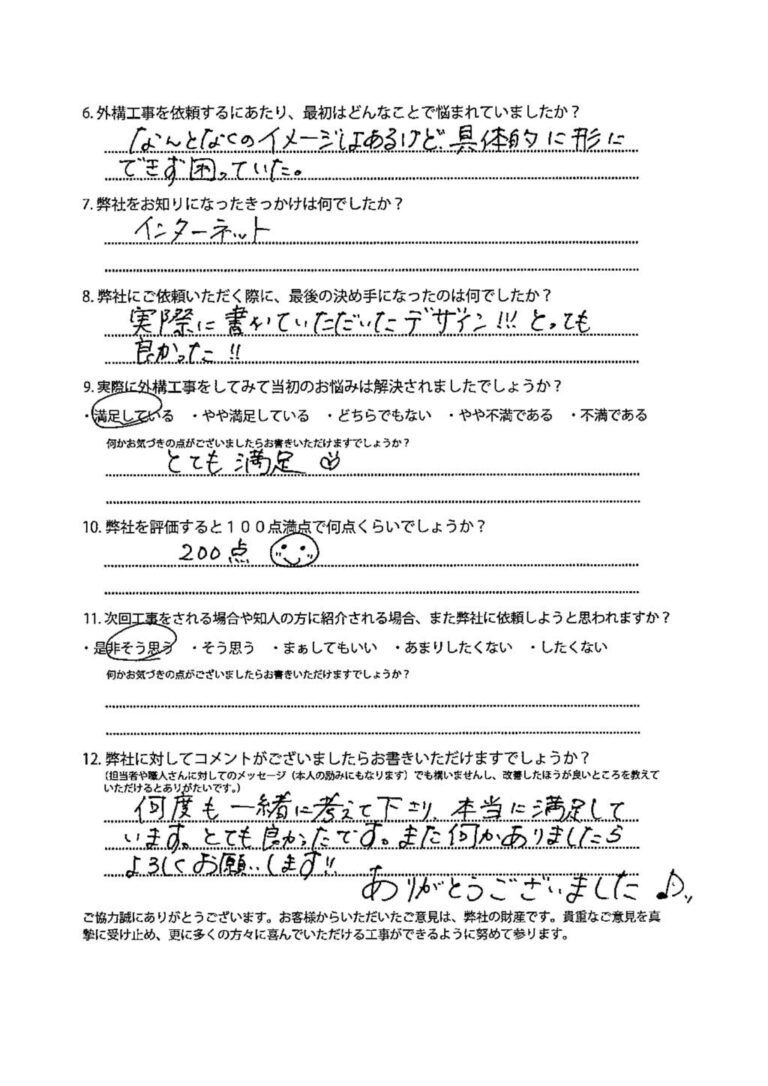 6. 外構工事を依頼するにあたり、最初はどんなことで悩まれていましたか？
なんとなくのイメージはあるけど、具体的に形に
できず困っていた。
7. 弊社をお知りになったきっかけは何でしたか？
インターネット
8. 弊社にご依頼いただく際に、最後の決め手になったのは何でしたか？
実際に書いていただいたデザイン!!! とっても
良かった!!
9. 実際に外構工事をしてみて当初のお悩みは解決されましたでしょうか？
・満足している ・やや満足している ・どちらでもない ・やや不満である ・不満である
何かお気づきの点がございましたらお書きいただけますでしょうか？
とても満足
10. 弊社を評価すると１００点満点で何点くらいでしょうか？
200点
11. 次回工事をされる場合や知人の方に紹介される場合、また弊社に依頼しようと思われますか？
・是非そう思う ・そう思う ・まぁしてもいい ・あまりしたくない ・したくない
何かお気づきの点がございましたらお書きいただけますでしょうか？
12. 弊社に対してコメントがございましたらお書きいただけますでしょうか？
（担当者や職人さんに対してのメッセージ（本人の励みにもなります）でも構いませんし、改善したほうが良いところを教えて
いただけるとありがたいです。）
何度も一緒に考えて下さり、本当に満足して
います。とても良かったです。また何かありましたら
よろしくお願いします!!
ありがとうございました♪
ご協力誠にありがとうございます。お客様からいただいたご意見は、弊社の財産です。貴重なご意見を真
摯に受け止め、更に多くの方々に喜んでいただける工事ができるように努めて参ります。